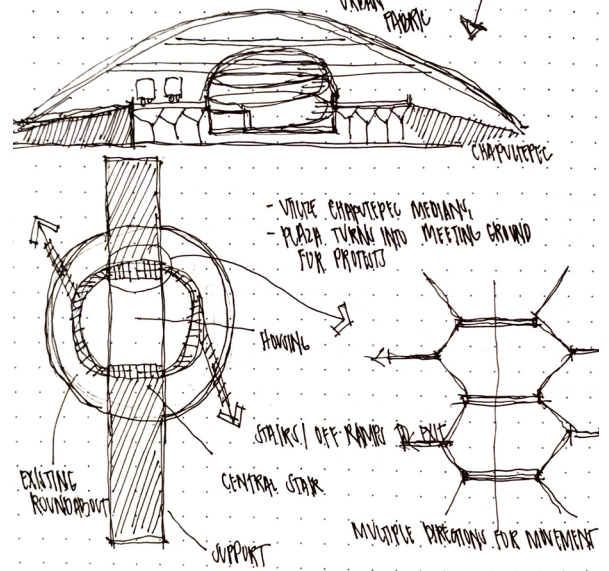 URBAN
FABRIC
CHAPULTEPEC
- UTILIZE CHAPUTEPEC MEDIANS
- PLAZA TURNS INTO MEETING GROUND
FOR PROTESTS
HOUSING
STAIRS / OFF-RAMPS TO EXIT
EXISTING
ROUNDABOUT
CENTRAL STAIR
MULTIPLE DIRECTIONS FOR MOVEMENT
SUPPORT